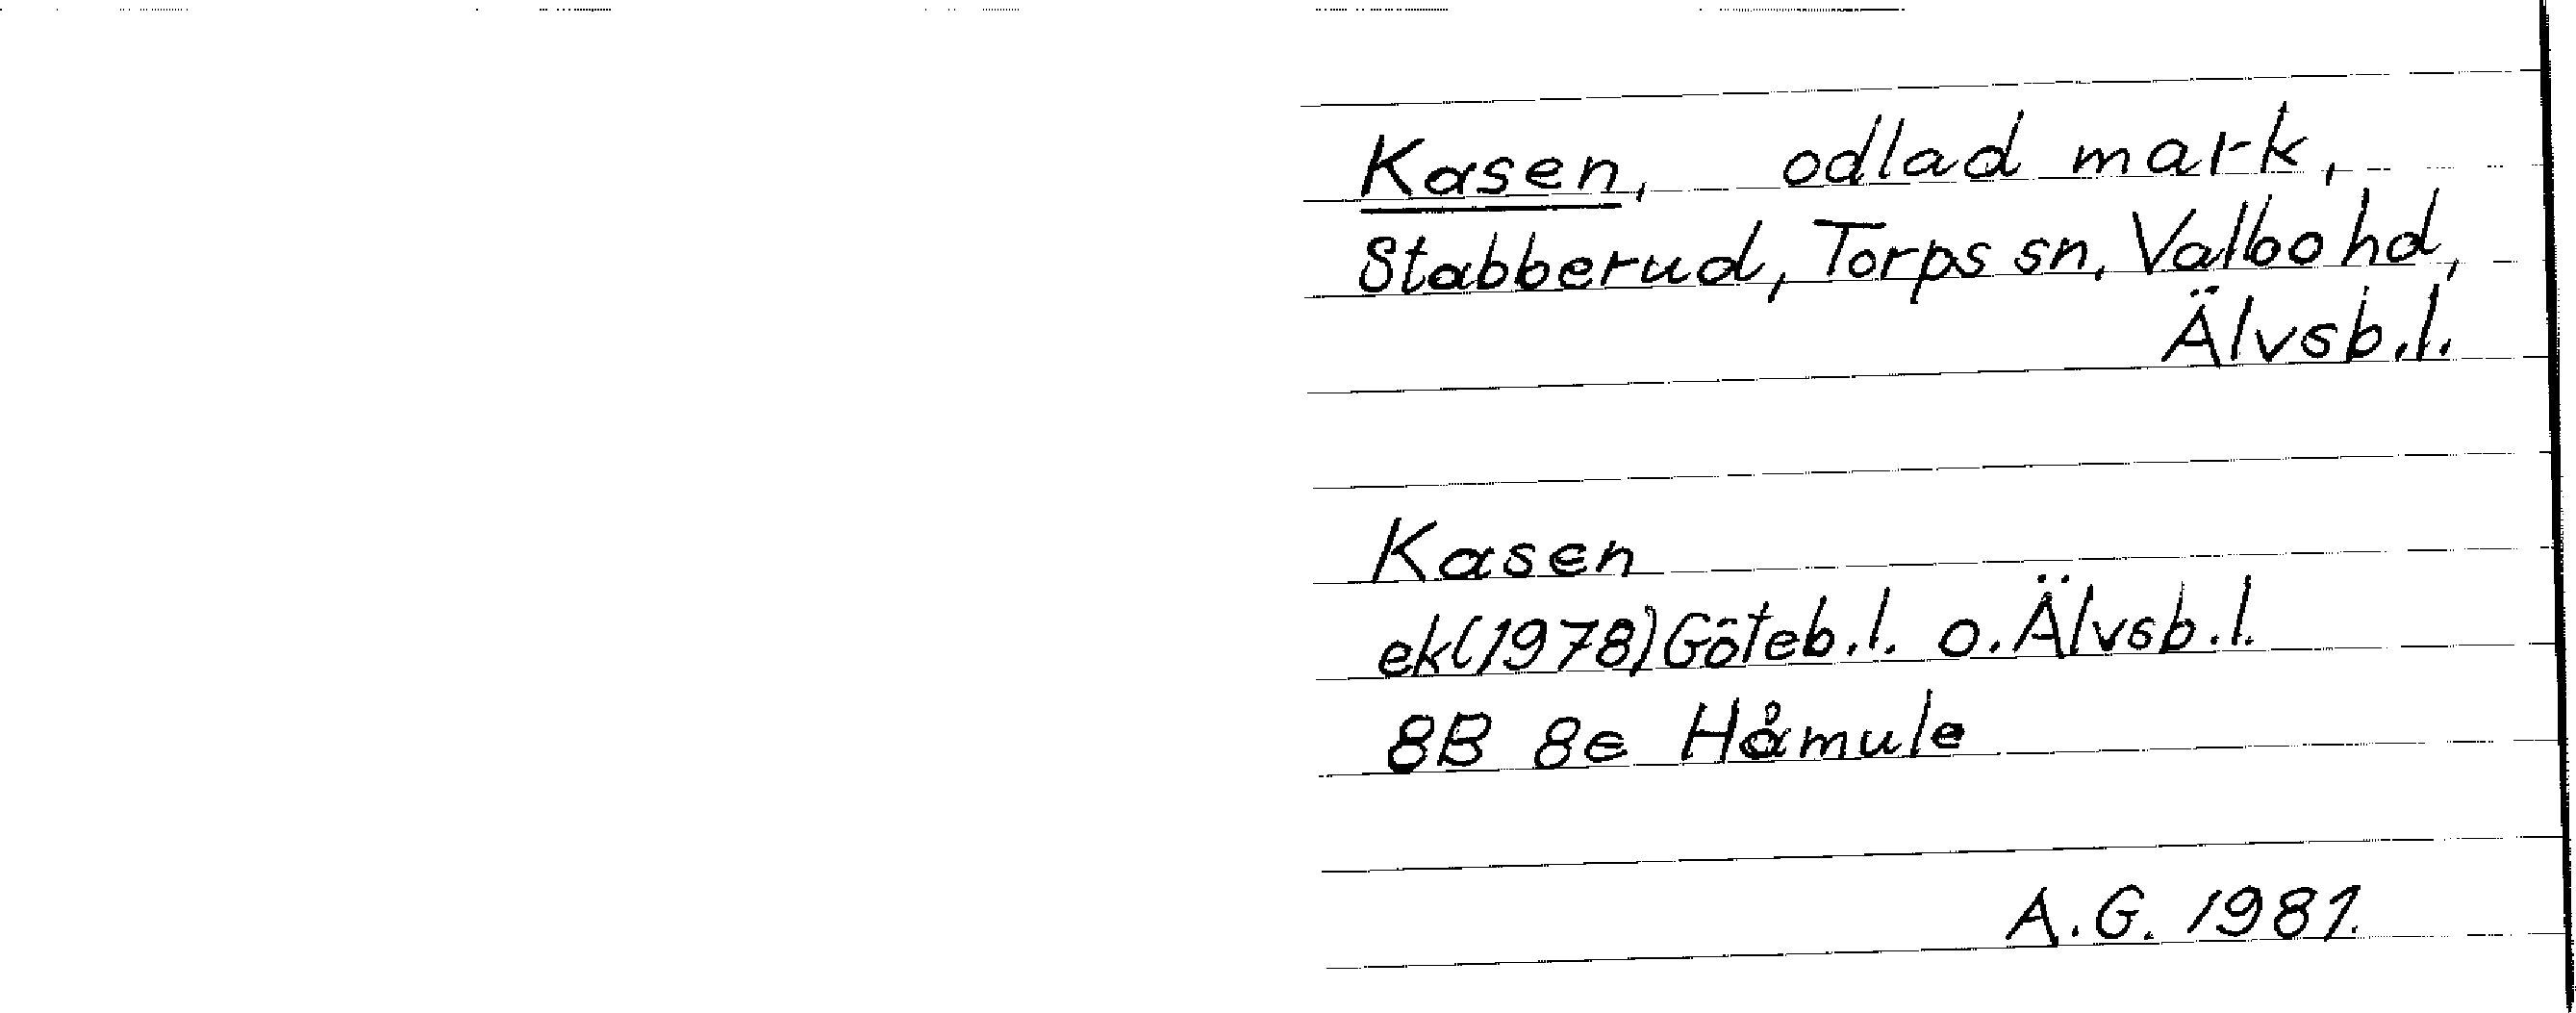 Kasen, odlad mark,
Stabberud, Torps sn, Valbo hd,
Älvsb.l.
Kasen
ek(1978)Göteb.l. o. Älvsb.l.
8B 8e Håmule
A.G. 1981.